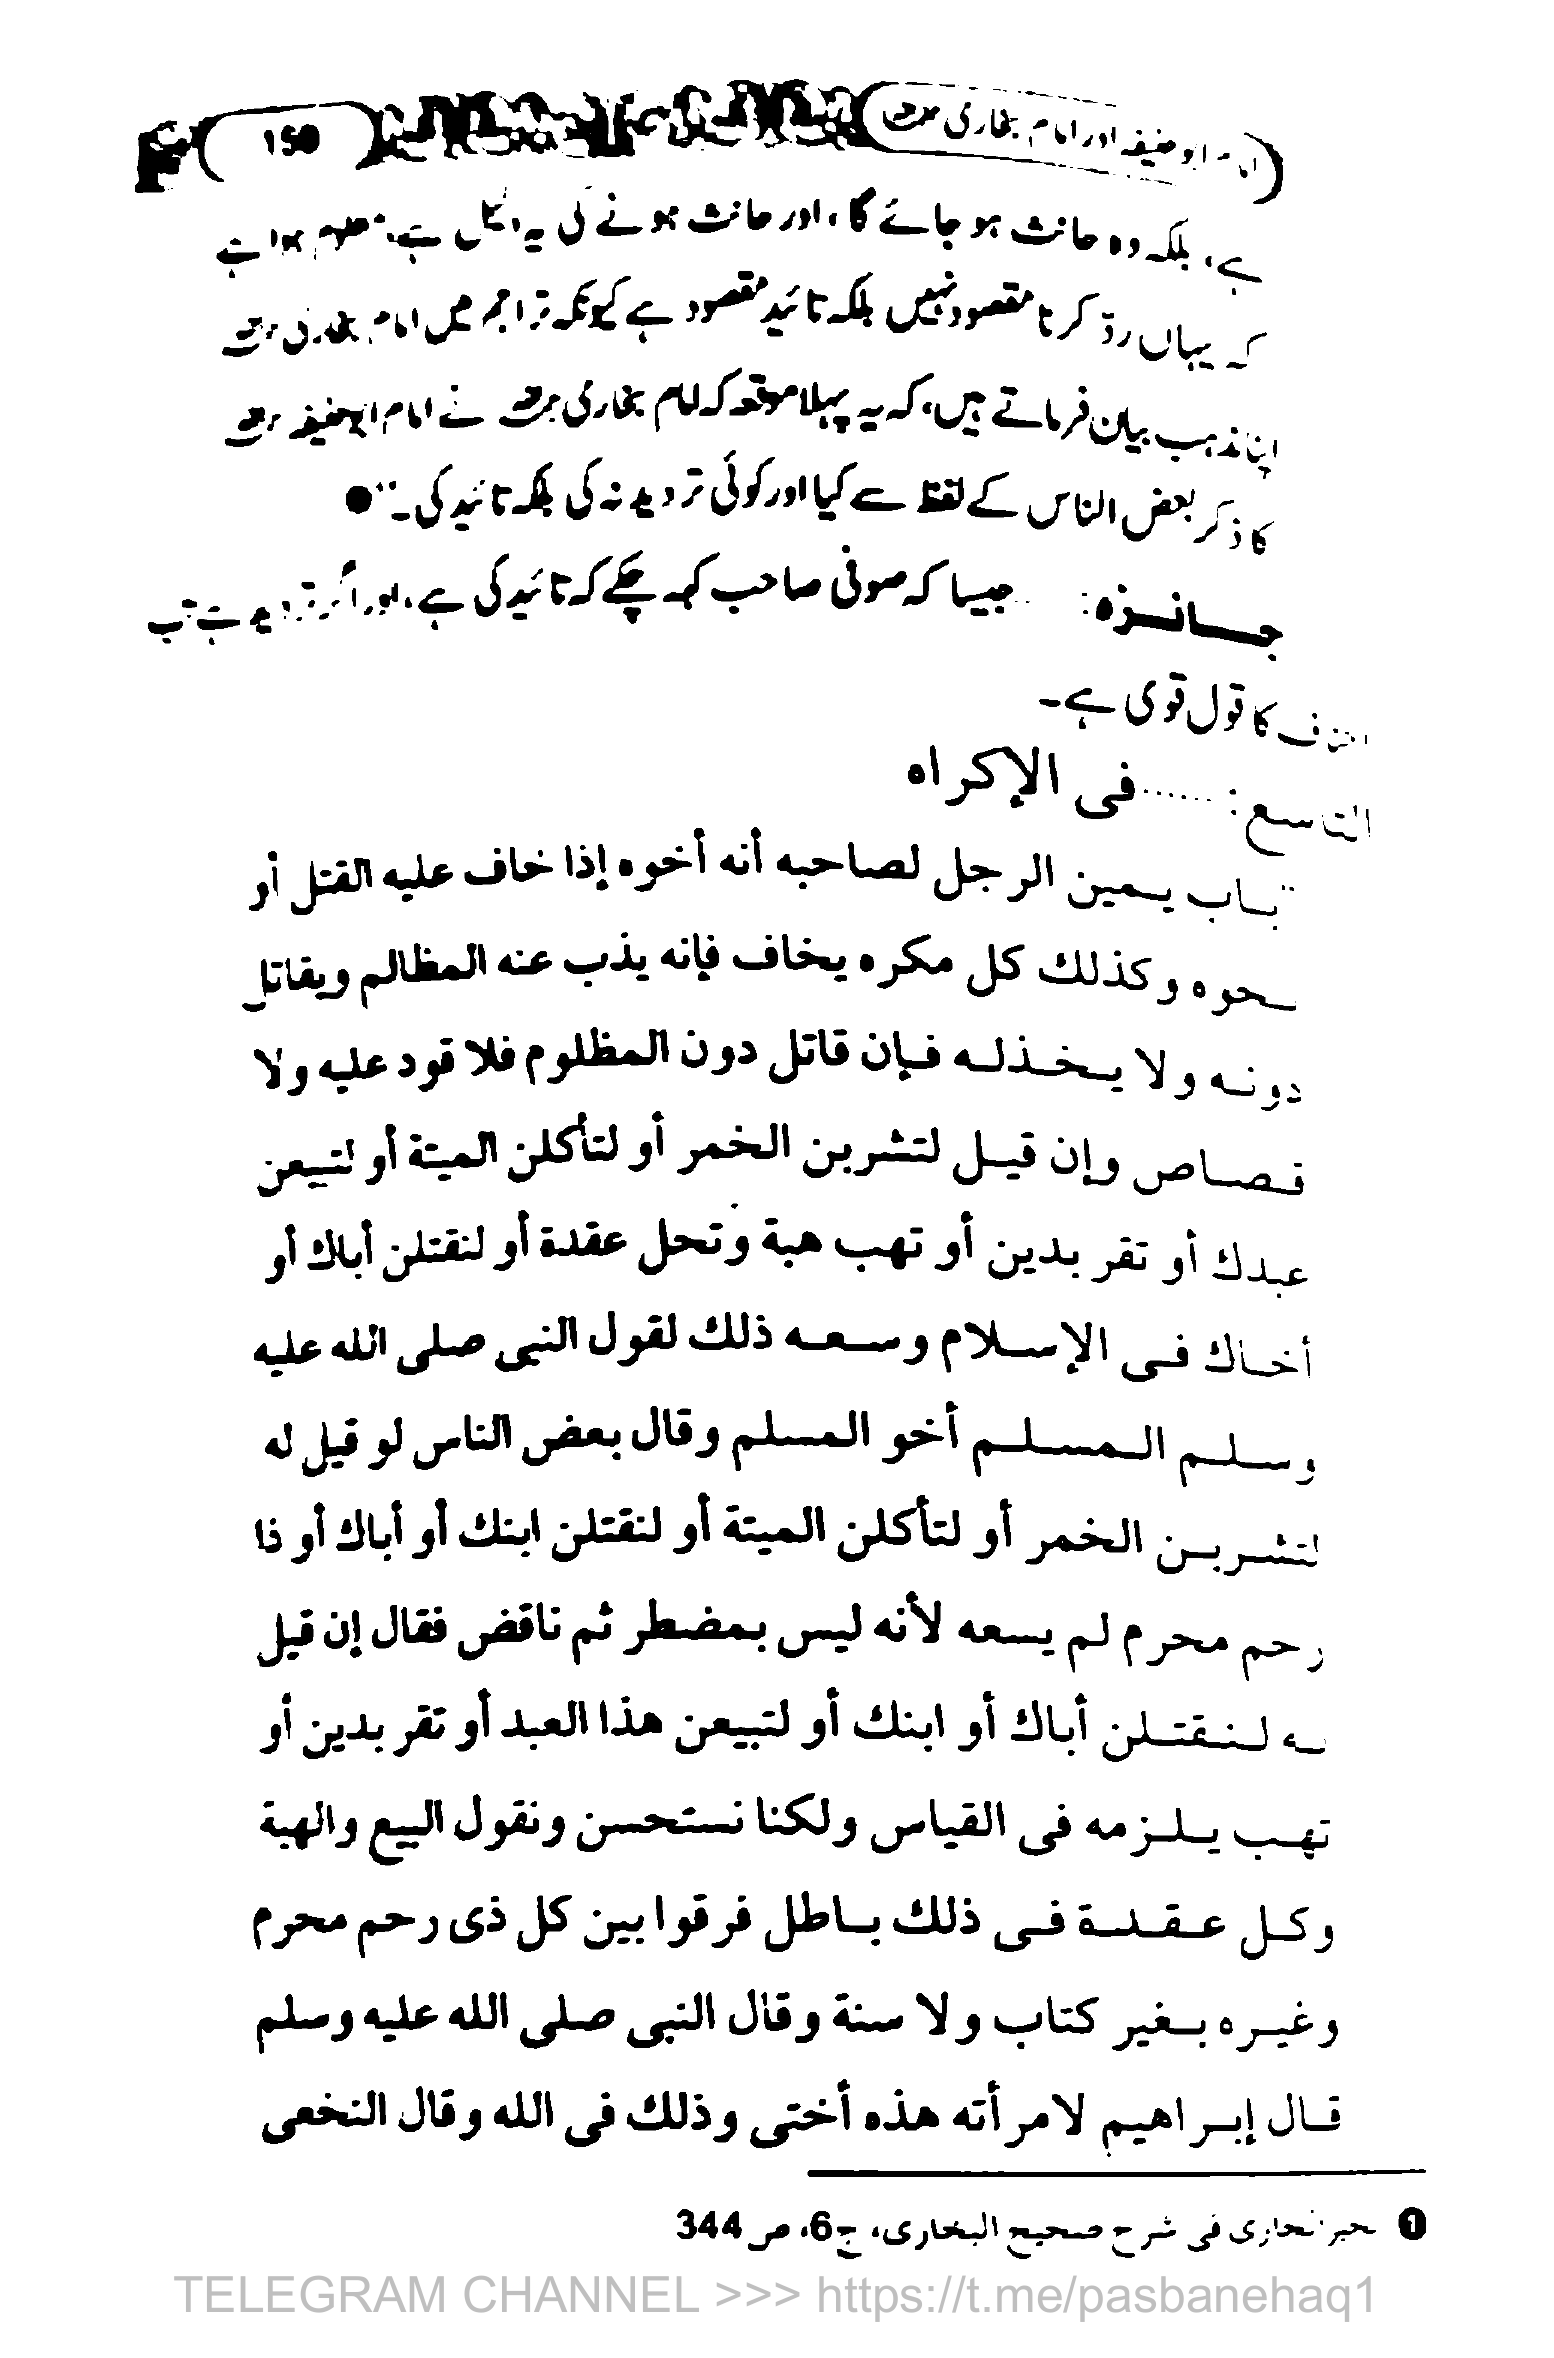 امام ابو حنیفہ اور امام بخاری
150
ہے، بلکہ وہ حانث ہو جائے گا، اور حانث ہونے کی یہ ہے، معلوم ہوا ہے
کہ یہاں ردّ کرنا مقصود نہیں بلکہ تائید مقصود ہے کیونکہ تراجم میں امام بخاری
اپنا مذہب بیان فرماتے ہیں، کہ یہ پہلا موقعہ کہ امام بخاری نے امام ابو حنیفہ
کا ذکر بعض الناس کے لفظ سے کیا اور کوئی تردید نہ کی بلکہ تائید کی۔"❶
جائزہ: ...جیسا کہ صوفی صاحب کہہ چکے کہ تائید کی ہے، اور اگر ہے تب
احناف کا قول قوی ہے۔
التاسع: ......فی الإكراه
"باب يمين الرجل لصاحبه أنه أخوه إذا خاف عليه القتل أو
نحوه وكذلك كل مكره يخاف فإنه يذب عنه المظالم ويقاتل
دونه ولا يخذله فإن قاتل دون المظلوم فلا قود عليه ولا
قصاص وإن قيل لتشربن الخمر أو لتأكلن الميتة أو لتبيعن
عبدك أو تقر بدين أو تهب هبة وتحل عقدة أو لنقتلن أباك أو
أخاك فى الإسلام وسعه ذلك لقول النبى صلى الله عليه
وسلم المسلم أخو المسلم وقال بعض الناس لو قيل له
لتشربن الخمر أو لتأكلن الميتة أو لنقتلن ابنك أو أباك أو ذا
رحم محرم لم يسعه لأنه ليس بمضطر ثم ناقض فقال إن قيل
له لنقتلن أباك أو ابنك أو لتبيعن هذا العبد أو تقر بدين أو
تهب يلزمه فى القياس ولكنا نستحسن ونقول البيع والهبة
وكل عقدة فى ذلك باطل فرقوا بين كل ذى رحم محرم
وغيره بغير كتاب ولا سنة وقال النبى صلى الله عليه وسلم
قال إبراهيم لامرأته هذه أختى وذلك فى الله وقال النخعى
❶ الجاری فی شرح صحیح البخاری، ج6، ص344
TELEGRAM CHANNEL >>> https://t.me/pasbanehaq1